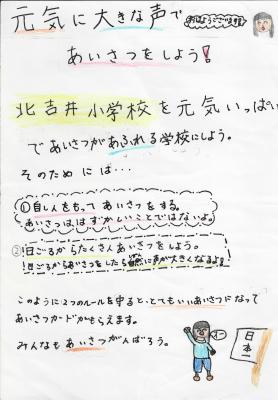 元気に大きな声で
おはようございます!
あいさつをしよう!
北吉井小学校を元気いっぱい
であいさつがあふれる学校にしよう。
そのためには…
①自しんをもってあいさつをする。
あいさつははずかしいことではないよ。
②日ごろからたくさんあいさつをしよう。
日ごろからあいさつをしたら自然に声が大きくなるよ!
このように2つのルールを守ると、とてもいいあいさつになって
あいさつカードがもらえます。
みんなもあいさつがんばろう。
日本一